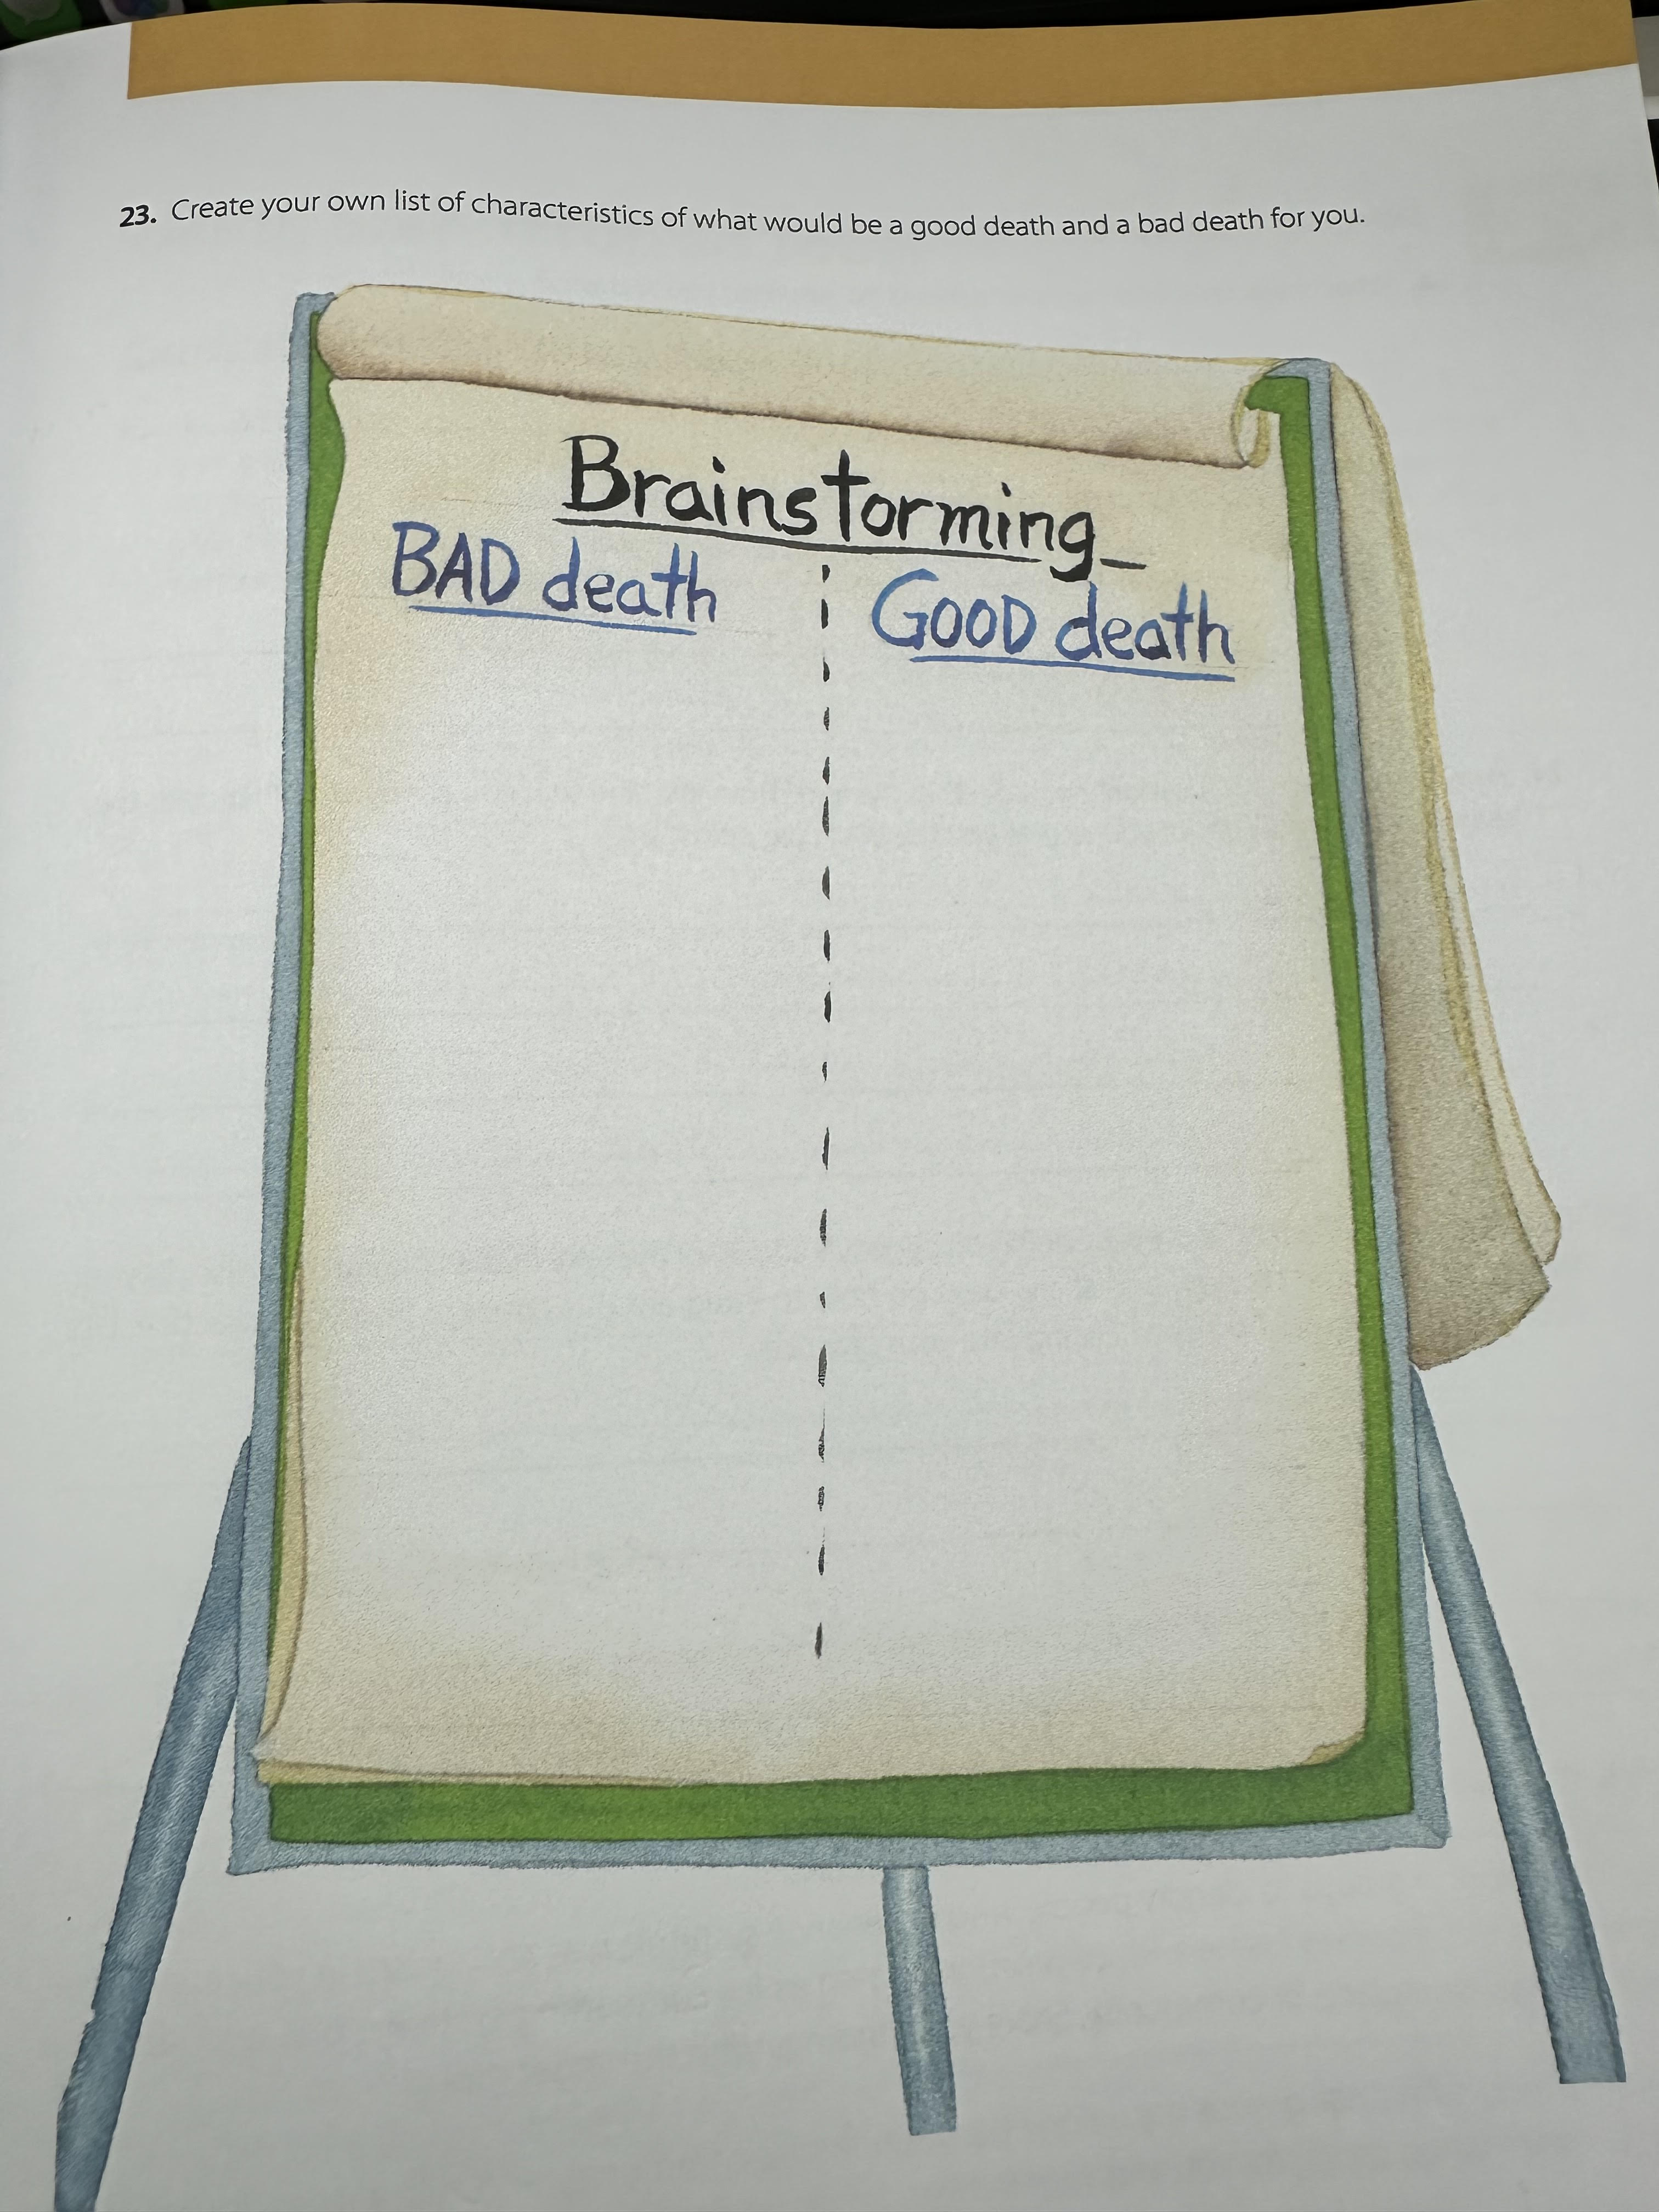 23. Create your own list of characteristics of what would be a good death and a bad death for you.
Brainstorming
BAD death
GOOD death